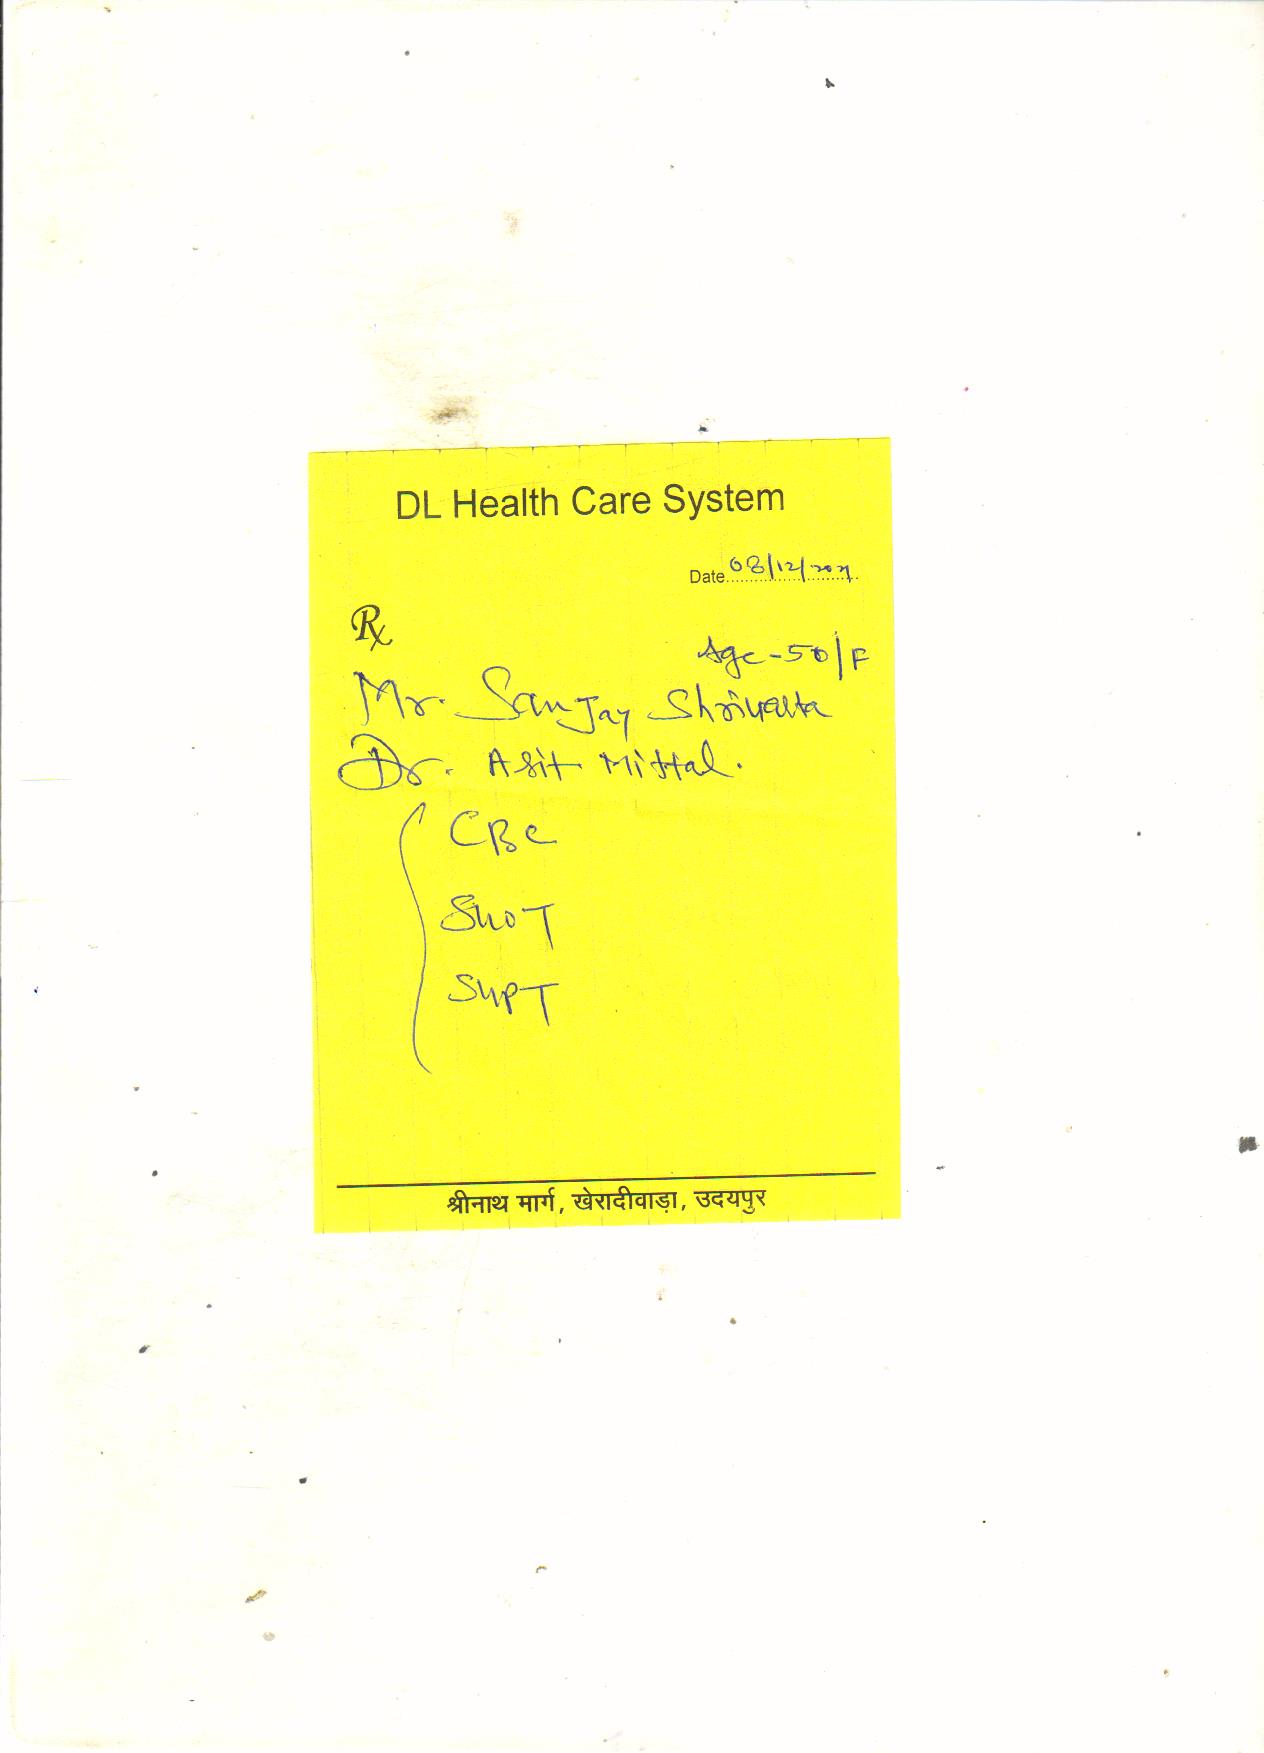 DL Health Care System
Date 08/12/2021
Rx
Age-50/F
Mr. Sanjay
Dr. Asit Mittal.
CBC
SGOT
SGPT
श्रीनाथ मार्ग, खेरादीवाड़ा, उदयपुर